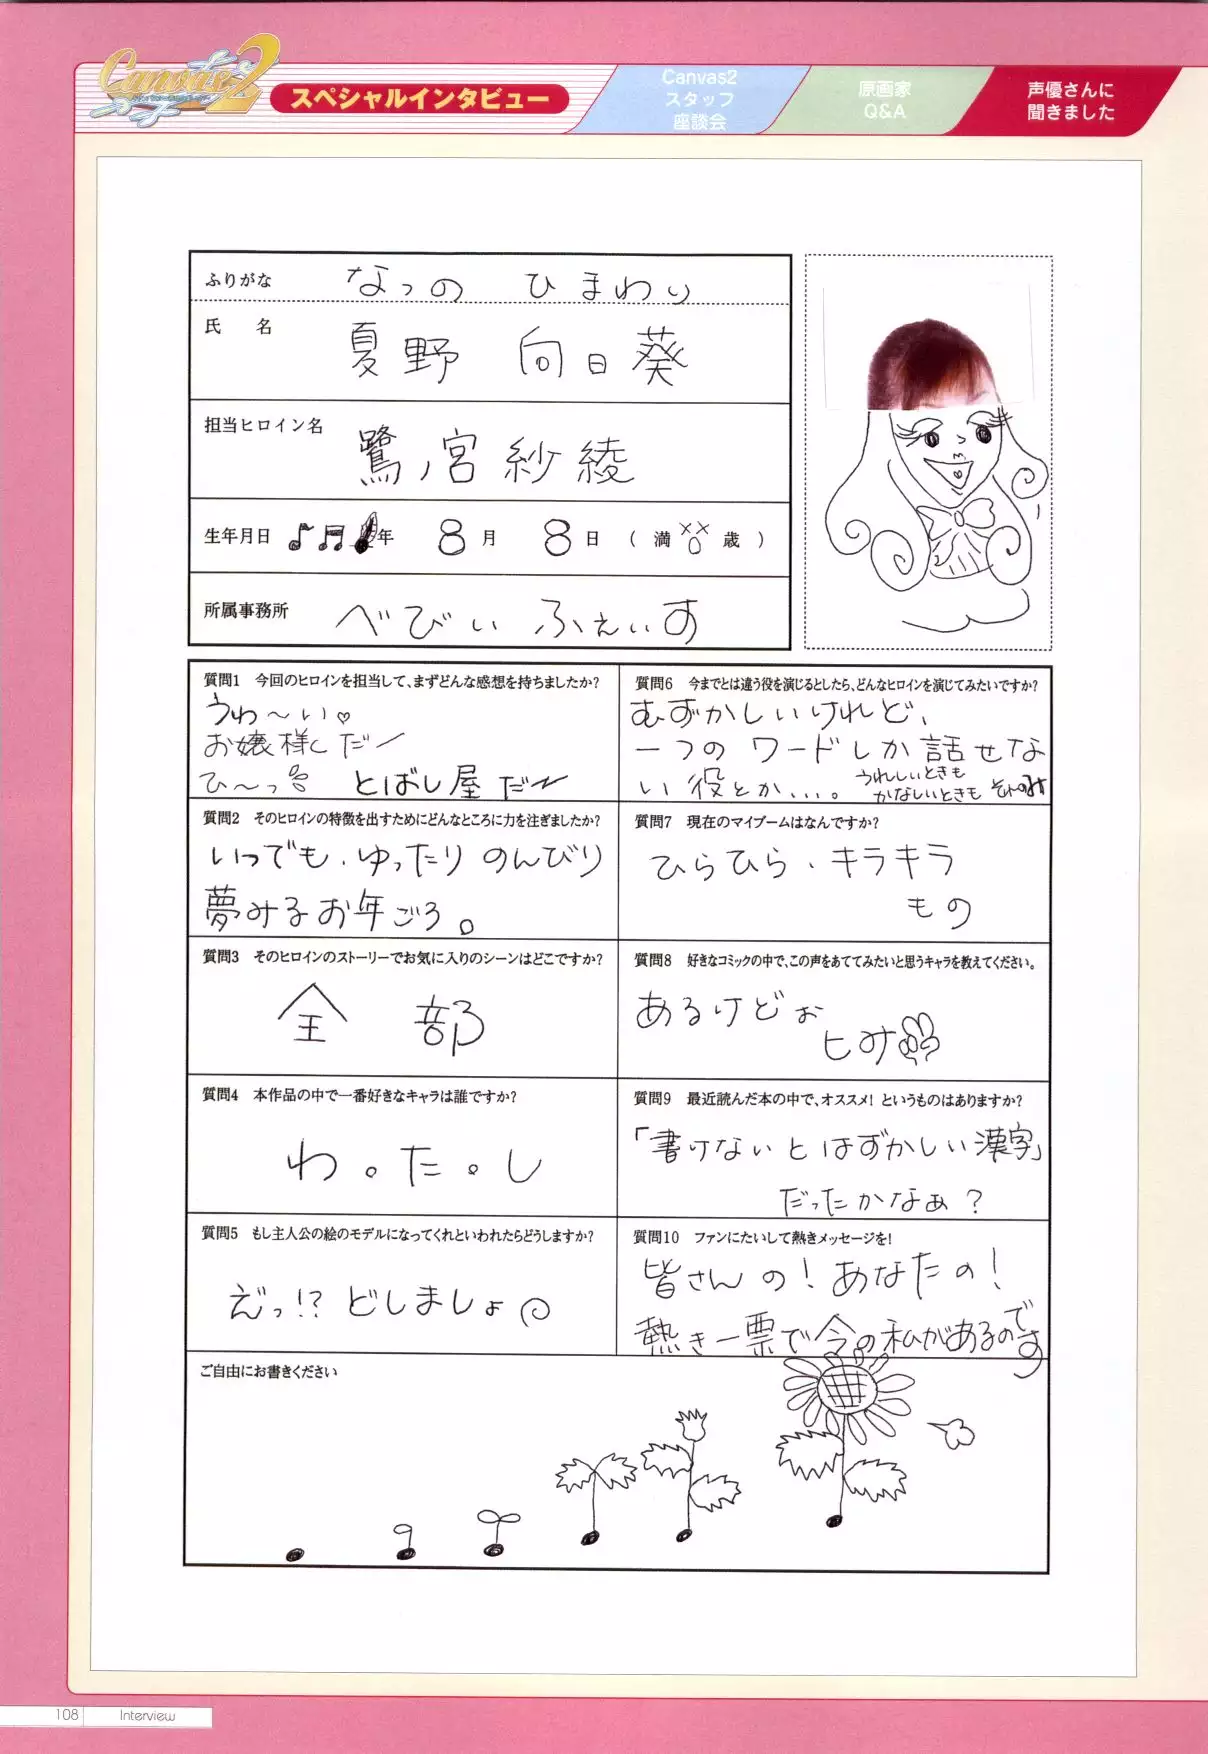 Canvas2
スペシャルインタビュー
Canvas2
スタッフ
座談会
原画家
Q&A
声優さんに
聞きました
ふりがな なつの ひまわり
氏 名 夏野 向日葵
担当ヒロイン名 鷺ノ宮紗綾
生年月日 年 8月 8日 (満 歳)
所属事務所 べびぃふぇいす
質問1 今回のヒロインを担当して、まずどんな感想を持ちましたか?
うわ〜い♡
お嬢様だー
ひ〜っ とばし屋だー
質問2 そのヒロインの特徴を出すためにどんなところに力を注ぎましたか?
いつでも、ゆったりのんびり
夢みるお年ごろ。
質問3 そのヒロインのストーリーでお気に入りのシーンはどこですか?
全 部
質問4 本作品の中で一番好きなキャラは誰ですか?
わ。た。し
質問5 もし主人公の絵のモデルになってくれといわれたらどうしますか?
えっ!? どしましょ
質問6 今までとは違う役を演じるとしたら、どんなヒロインを演じてみたいですか?
むずかしいけれど、
一つのワードしか話せな
い役とか...。 うれしいときも
かなしいときも それのみ
質問7 現在のマイブームはなんですか?
ひらひら、キラキラ
もの
質問8 好きなコミックの中で、この声をあててみたいと思うキャラを教えてください。
あるけどぉ
ヒみ
質問9 最近読んだ本の中で、オススメ! というものはありますか?
「書けないとはずかしい漢字」
だったかなぁ?
質問10 ファンにたいして熱きメッセージを!
皆さんの!あなたの!
熱き一票で今の私があるのです
ご自由にお書きください
108 Interview